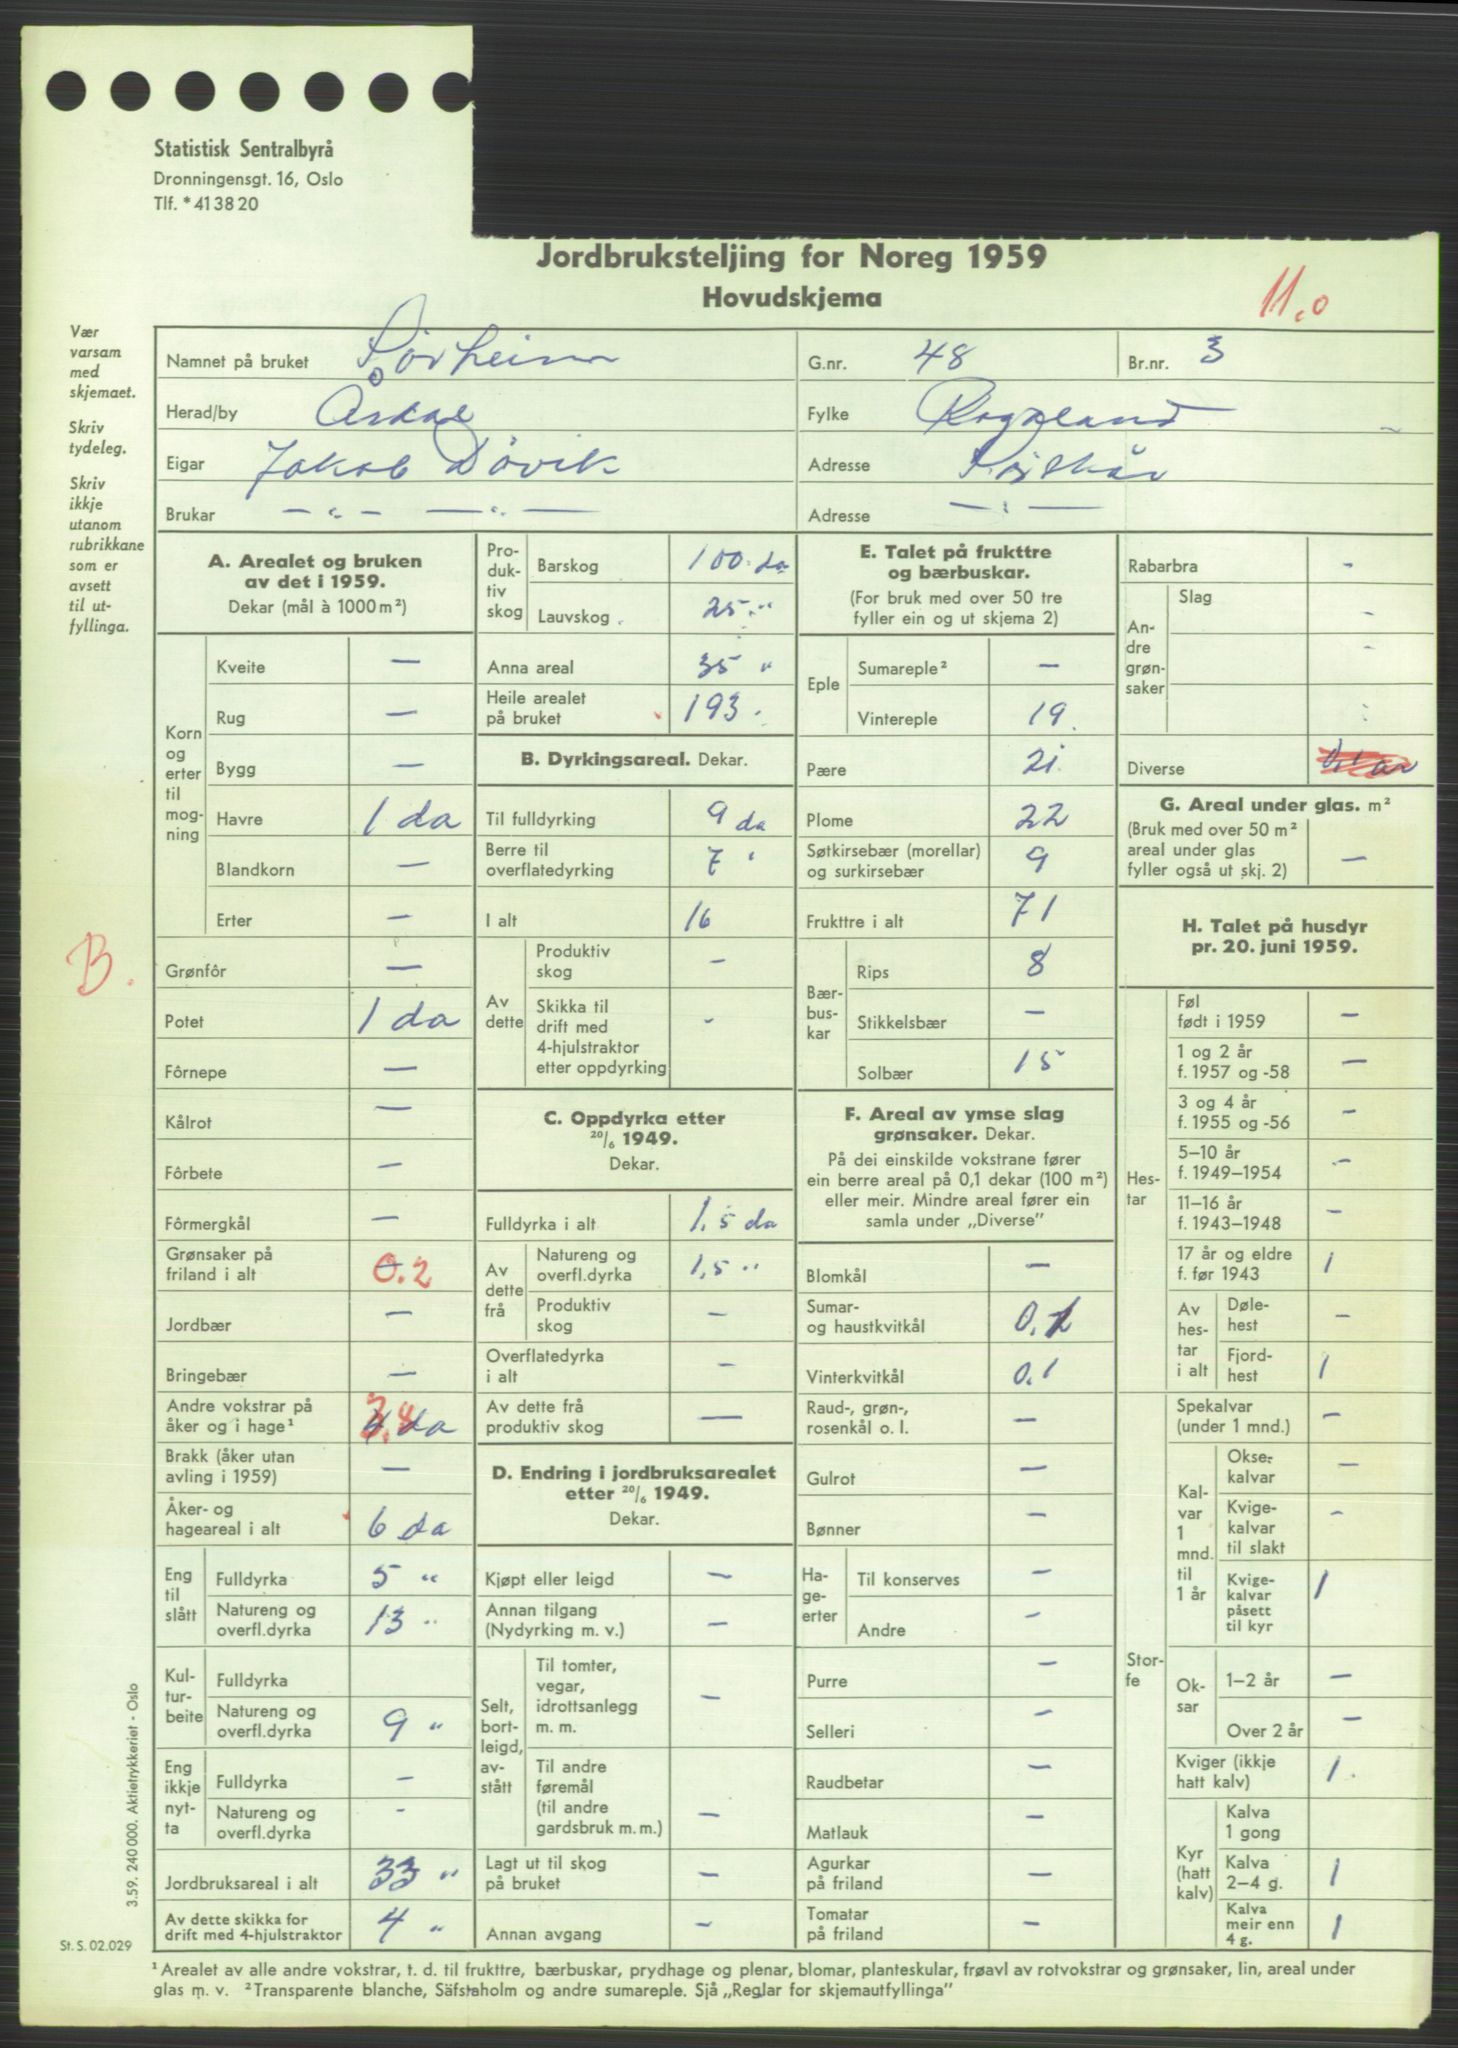 Statistisk Sentralbyrå
Dronningensgt. 16, Oslo
Tlf. * 41 38 20
Jordbruksteljing for Noreg 1959
Hovudskjema
11.0
Vær
varsam
med
skjemaet.
Skriv
tydeleg.
Skriv
ikkje
utanom
rubrikkane
som er
avsett
til ut-
fyllinga.
B.
Namnet på bruket Sørheim G.nr. 48 Br.nr. 3
Herad/by Årdal Fylke Rogaland
Eigar Jakob Døvik Adresse
Brukar — " — — " — Adresse — " —
A. Arealet og bruken
av det i 1959.
Dekar (mål à 1000 m²)
Korn og erter til mog-ning
Kveite —
Rug —
Bygg —
Havre 1 da
Blandkorn —
Erter —
Grønfôr —
Potet 1 da
Fôrnepe —
Kålrot —
Fôrbete —
Fôrmergkål —
Grønsaker på
friland i alt 0.2
Jordbær —
Bringebær —
Andre vokstrar på
åker og i hage¹ 4 da 3.8
Brakk (åker utan
avling i 1959) —
Åker- og
hageareal i alt 6 da
Eng til slått
Fulldyrka 5 "
Natureng og
overfl.dyrka 13 "
Kul-tur-beite
Fulldyrka
Natureng og
overfl.dyrka 9 "
Eng ikkje nyt-ta
Fulldyrka —
Natureng og
overfl.dyrka -
Jordbruksareal i alt 33 "
Av dette skikka for
drift med 4-hjulstraktor 4 "
Pro-duk-tiv skog
Barskog 100 da
Lauvskog 25 "
Anna areal 35 "
Heile arealet
på bruket 193
B. Dyrkingsareal. Dekar.
Til fulldyrking 9 da
Berre til
overflatedyrking 7 "
I alt 16
Av dette
Produktiv
skog -
Skikka til
drift med
4-hjulstraktor
etter oppdyrking -
C. Oppdyrka etter
20/6 1949.
Dekar.
Fulldyrka i alt 1,5 da
Av dette frå
Natureng og
overfl.dyrka 1,5 "
Produktiv
skog —
Overflatedyrka
i alt —
Av dette frå
produktiv skog —
D. Endring i jordbruksarealet
etter 20/6 1949.
Dekar.
Kjøpt eller leigd —
Annan tilgang
(Nydyrking m. v.) —
Selt, bort-leigd, av-stått
Til tomter,
vegar,
idrottsanlegg
m. m. —
Til andre
føremål
(til andre
gardsbruk m. m.) —
Lagt ut til skog
på bruket —
Annan avgang —
E. Talet på frukttre
og bærbuskar.
(For bruk med over 50 tre
fyller ein og ut skjema 2)
Eple
Sumareple² —
Vintereple 19
Pære 21
Plome 22
Søtkirsebær (morellar)
og surkirsebær 9
Frukttre i alt 71
Bær-bus-kar
Rips 8
Stikkelsbær —
Solbær 15
F. Areal av ymse slag
grønsaker. Dekar.
På dei einskilde vokstrane fører
ein berre areal på 0,1 dekar (100 m²)
eller meir. Mindre areal fører ein
samla under „Diverse”
Blomkål —
Sumar-
og haustkvitkål 0.1
Vinterkvitkål 0.1
Raud-, grøn-,
rosenkål o. l. —
Gulrot —
Bønner —
Ha-ge-erter
Til konserves —
Andre —
Purre —
Selleri —
Raudbetar —
Matlauk —
Agurkar
på friland —
Tomatar
på friland —
Rabarbra -
An-dre grøn-saker
Slag -
-
Diverse
G. Areal under glas. m²
(Bruk med over 50 m²
areal under glas
fyller også ut skj. 2) —
H. Talet på husdyr
pr. 20. juni 1959.
Hes-tar
Føl
født i 1959 —
1 og 2 år
f. 1957 og -58 —
3 og 4 år
f. 1955 og -56 —
5–10 år
f. 1949–1954 —
11–16 år
f. 1943–1948 —
17 år og eldre
f. før 1943 1
Av hes-tar i alt
Døle-
hest —
Fjord-
hest 1
Stor-fe
Spekalvar
(under 1 mnd.) —
Kal-var 1 mnd. til 1 år
Okse-
kalvar —
Kvige-
kalvar
til slakt -
Kvige-
kalvar
påsett
til kyr 1
Ok-sar
1–2 år —
Over 2 år —
Kviger (ikkje
hatt kalv) 1
Kyr (hatt kalv)
Kalva
1 gong
Kalva
2–4 g. 1
Kalva
meir enn
4 g. 1
3.59. 240 000. Aktietrykkeriet - Oslo
St. S. 02.029
¹ Arealet av alle andre vokstrar, t. d. til frukttre, bærbuskar, prydhage og plenar, blomar, planteskular, frøavl av rotvokstrar og grønsaker, lin, areal under
glas m. v. ² Transparente blanche, Säfstaholm og andre sumareple. Sjå „Reglar for skjemautfyllinga”